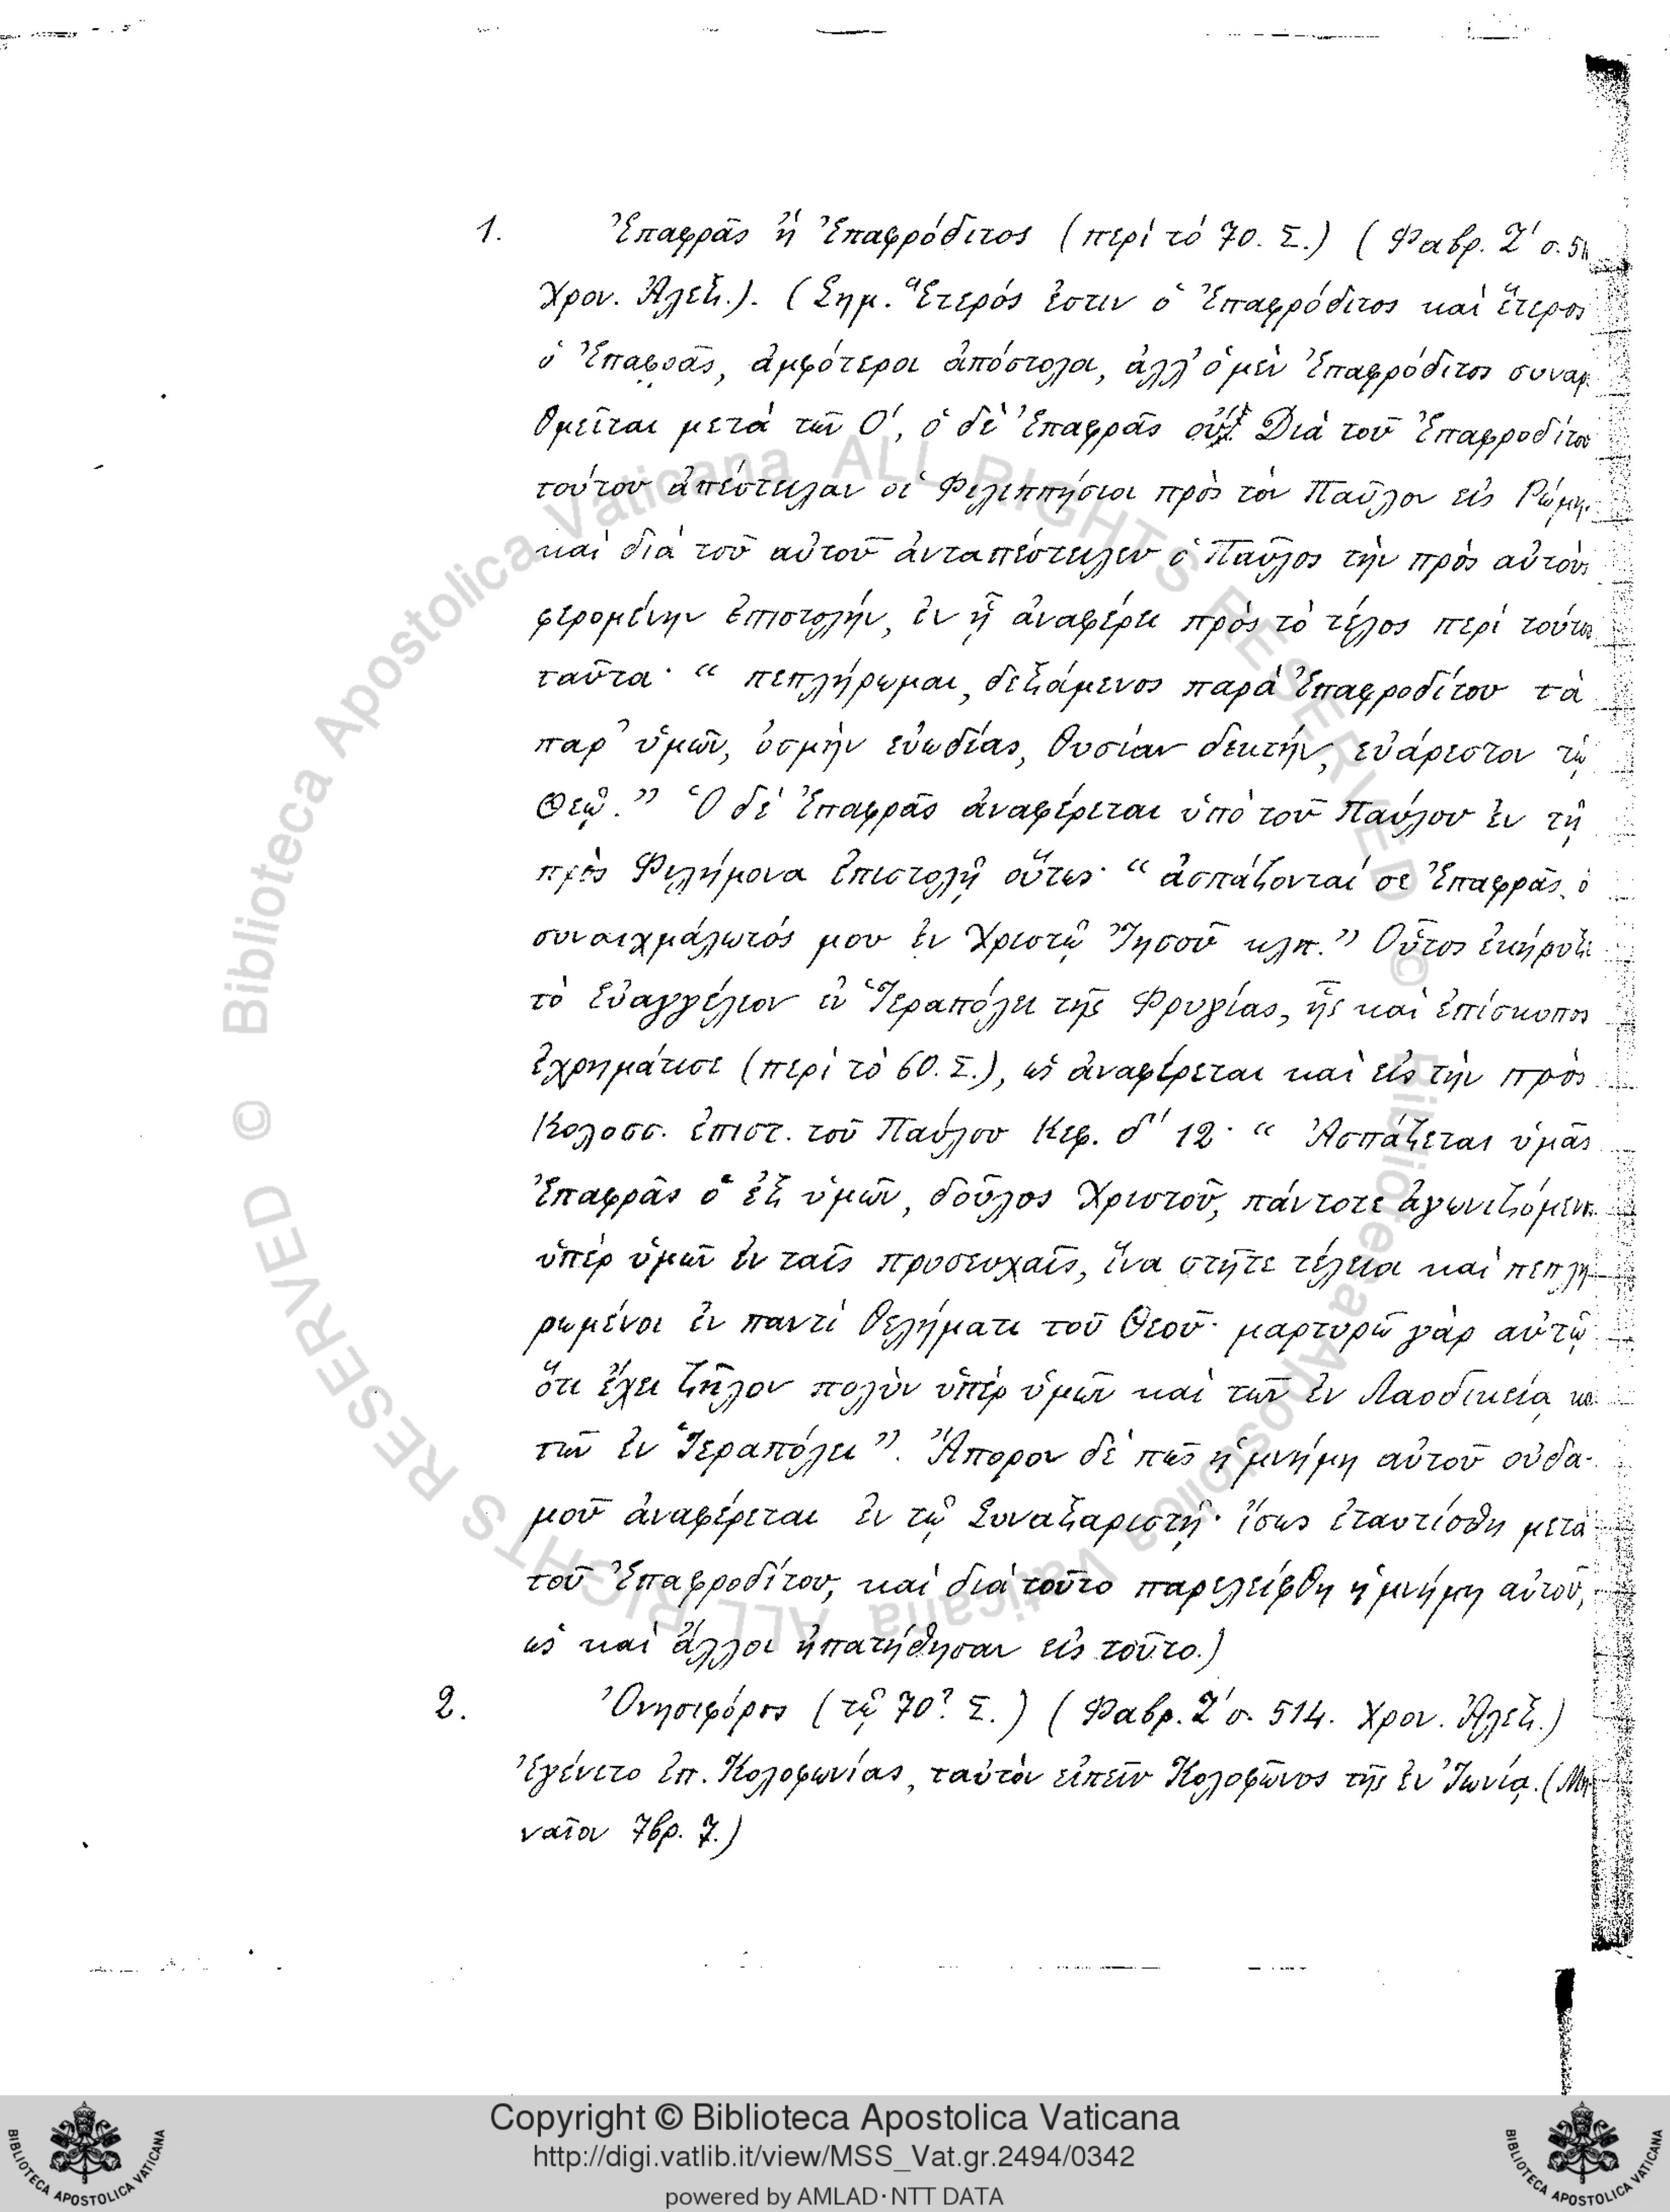 1. Ἐπαφρᾶς ἢ Ἐπαφρόδιτος (περὶ τὸ 70. Σ.) (Φαβρ. Ζ' σ.
Χρον. Ἀλεξ.). (Σημ. Ἕτερός ἐστιν ὁ Ἐπαφρόδιτος καὶ ἕτερος
ὁ Ἐπαφρᾶς, ἀμφότεροι ἀπόστολοι, ἀλλ' ὁ μὲν Ἐπαφρόδιτος συναρ
θμεῖται μετὰ τῶν Ο', ὁ δὲ Ἐπαφρᾶς οὔ. Διὰ τοῦ Ἐπαφροδίτου
τούτου ἀπέστειλαν οἱ Φιλιππήσιοι πρὸς τὸν Παῦλον εἰς Ῥώμην
καὶ διὰ τοῦ αὐτοῦ ἀνταπέστειλεν ὁ Παῦλος τὴν πρὸς αὐτοὺς
φερομένην ἐπιστολήν, ἐν ᾗ ἀναφέρει πρὸς τὸ τέλος περὶ τούτου
ταῦτα· “ πεπλήρωμαι, δεξάμενος παρὰ Ἐπαφροδίτου τὰ
παρ' ὑμῶν, ὀσμὴν εὐωδίας, θυσίαν δεκτήν, εὐάρεστον τῷ
Θεῷ.” Ὁ δὲ Ἐπαφρᾶς ἀναφέρεται ὑπὸ τοῦ Παύλου ἐν τῇ
πρὸς Φιλήμονα ἐπιστολῇ οὕτως· “ ἀσπάζονταί σε Ἐπαφρᾶς ὁ
συναιχμάλωτός μου ἐν Χριστῷ Ἰησοῦ κλπ.” Οὗτος ἐκήρυξε
τὸ Εὐαγγέλιον ἐν Ἱεραπόλει τῆς Φρυγίας, ἧς καὶ ἐπίσκοπος
ἐχρημάτισε (περὶ τὸ 60. Σ.), ὡς ἀναφέρεται καὶ εἰς τὴν πρὸς
Κολοσσ. ἐπιστ. τοῦ Παύλου Κεφ. δ' 12· “ Ἀσπάζεται ὑμᾶς
Ἐπαφρᾶς ὁ ἐξ ὑμῶν, δοῦλος Χριστοῦ, πάντοτε ἀγωνιζόμενος
ὑπὲρ ὑμῶν ἐν ταῖς προσευχαῖς, ἵνα στῆτε τέλειοι καὶ πεπλη
ρωμένοι ἐν παντὶ θελήματι τοῦ Θεοῦ· μαρτυρῶ γὰρ αὐτῷ
ὅτι ἔχει ζῆλον πολὺν ὑπὲρ ὑμῶν καὶ τῶν ἐν Λαοδικείᾳ κα
τῶν ἐν Ἱεραπόλει”. Ἄπορον δὲ πῶς ἡ μνήμη αὐτοῦ οὐδα-
μοῦ ἀναφέρεται ἐν τῷ Συναξαριστῇ· ἴσως ἐταυτίσθη μετὰ
τοῦ Ἐπαφροδίτου, καὶ διὰ τοῦτο παρελείφθη ἡ μνήμη αὐτοῦ,
ὡς καὶ ἄλλοι ἠπατήθησαν εἰς τοῦτο.)
2. Ὀνησιφόρος (τῷ 70? Σ.) (Φαβρ. Ζ' σ. 514. Χρον. Ἀλεξ.)
Ἐγένετο ἐπ. Κολοφωνίας, ταὐτὸν εἰπεῖν Κολοφῶνος τῆς ἐν Ἰωνίᾳ. (Μη
ναῖον 7βρ. 7.)
© Biblioteca Apostolica Vaticana ALL RIGHTS RESERVED © Biblioteca Apostolica Vaticana ALL RIGHTS RESERVED
Copyright © Biblioteca Apostolica Vaticana
http://digi.vatlib.it/view/MSS_Vat.gr.2494/0342
powered by AMLAD·NTT DATA
BIBLIOTECA APOSTOLICA VATICANA
BIBLIOTECA APOSTOLICA VATICANA